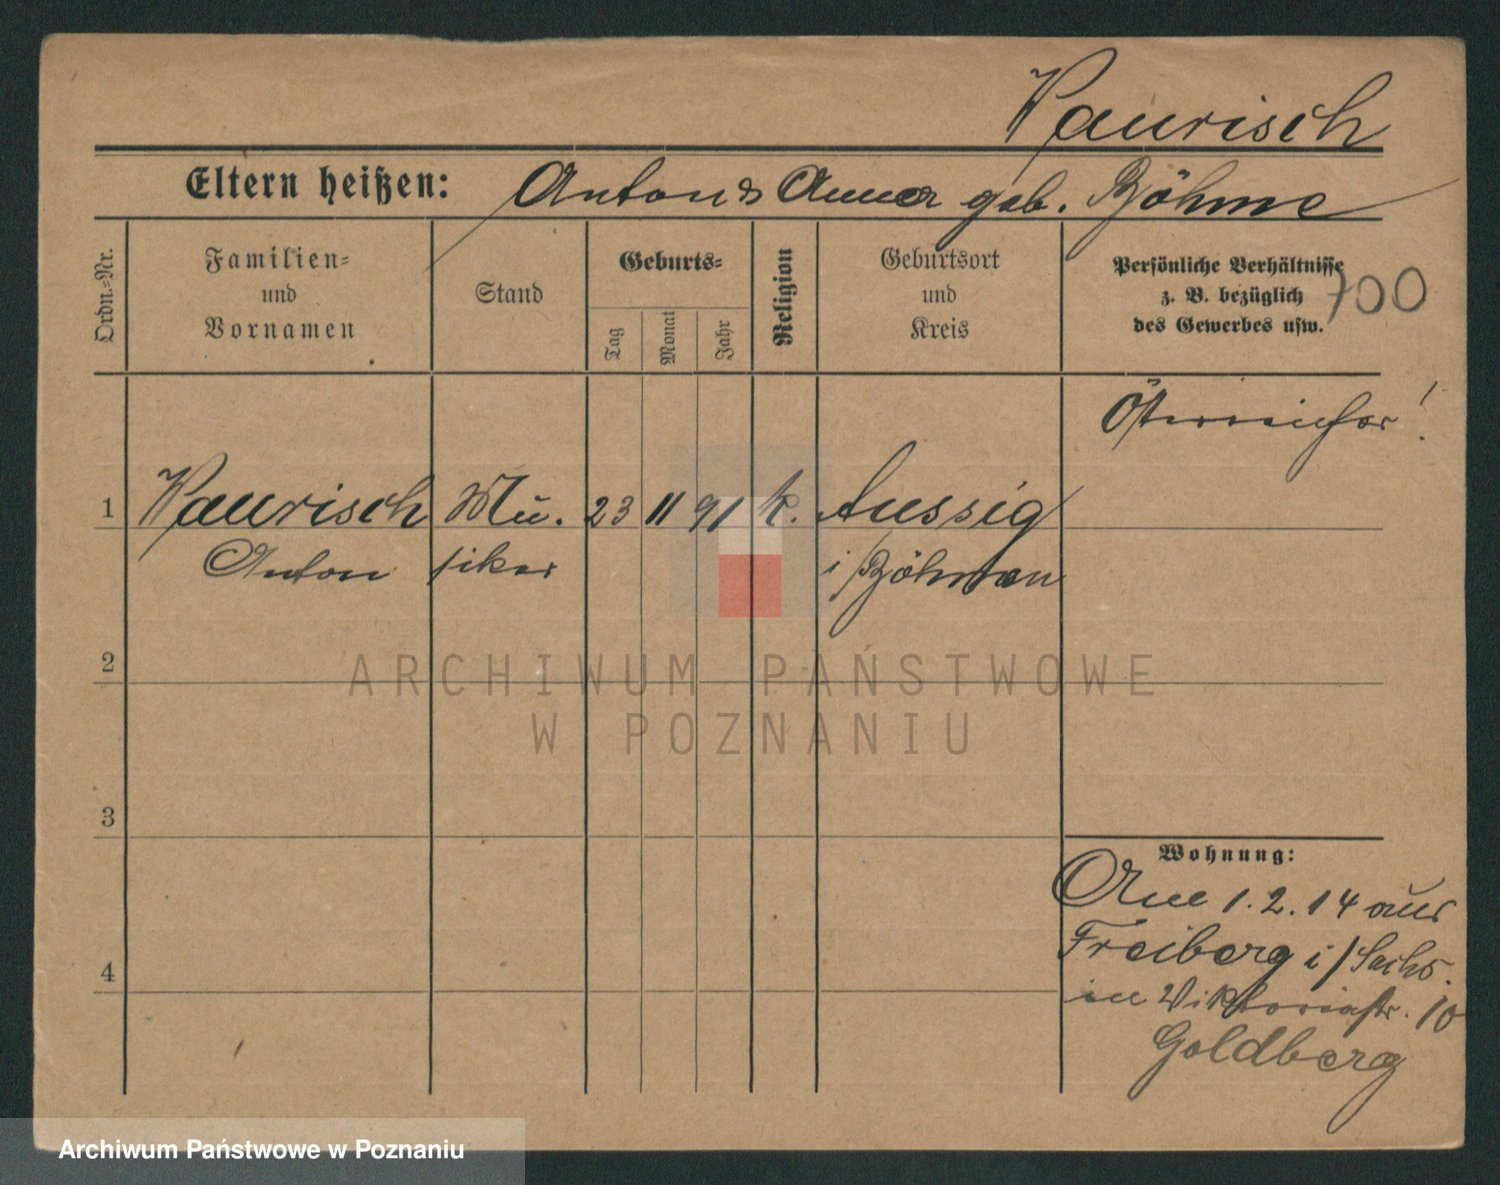 Vaurisch
Eltern heißen: Anton & Anna geb. Böhme
Ordn.-Nr.
Familien-
und
Vornamen
Stand
Geburts-
Tag
Monat
Jahr
Religion
Geburtsort
und
Kreis
Persönliche Verhältnisse
z. B. bezüglich
des Gewerbes usw.
700
Österreicher!
1 Vaurisch Mu. 23 11 91 k. Aussig
Anton siker i/Böhmen
2
3
4
Wohnung:
Am 1.2.14 aus
Freiberg i/Sachs.
in Viktoriastr. 10
Goldberg
ARCHIWUM PAŃSTWOWE
W POZNANIU
Archiwum Państwowe w Poznaniu